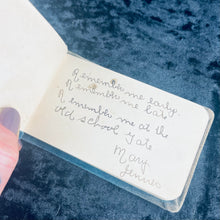 Remember me early,
Remember me late
Remember me at the
Old school Gate
Mary